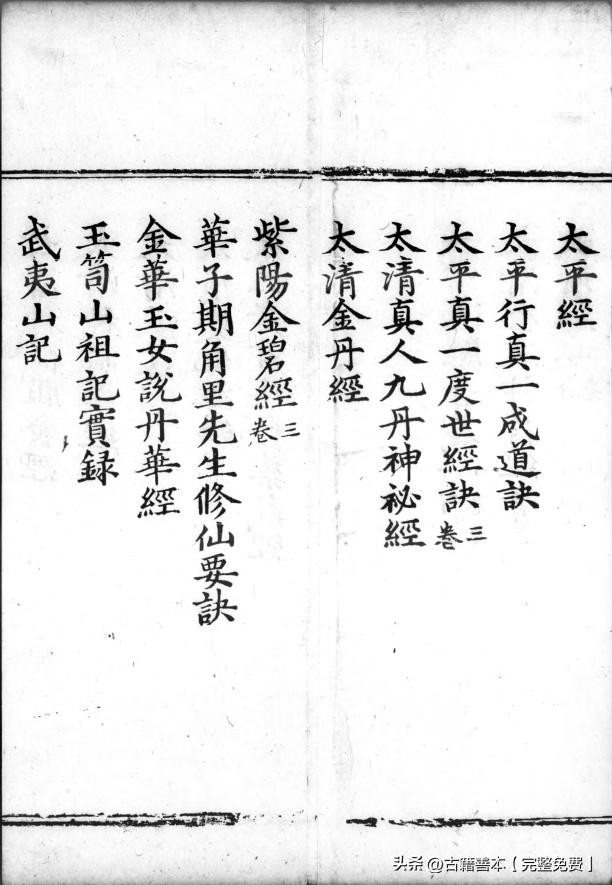 太平經
太平行真一成道訣
太平真一度世經訣三卷
太清真人九丹神祕經
太清金丹經
紫陽金碧經三卷
華子期角里先生修仙要訣
金華玉女說丹華經
玉笥山祖記實録
武夷山記
头条 @古籍善本【完整免费】